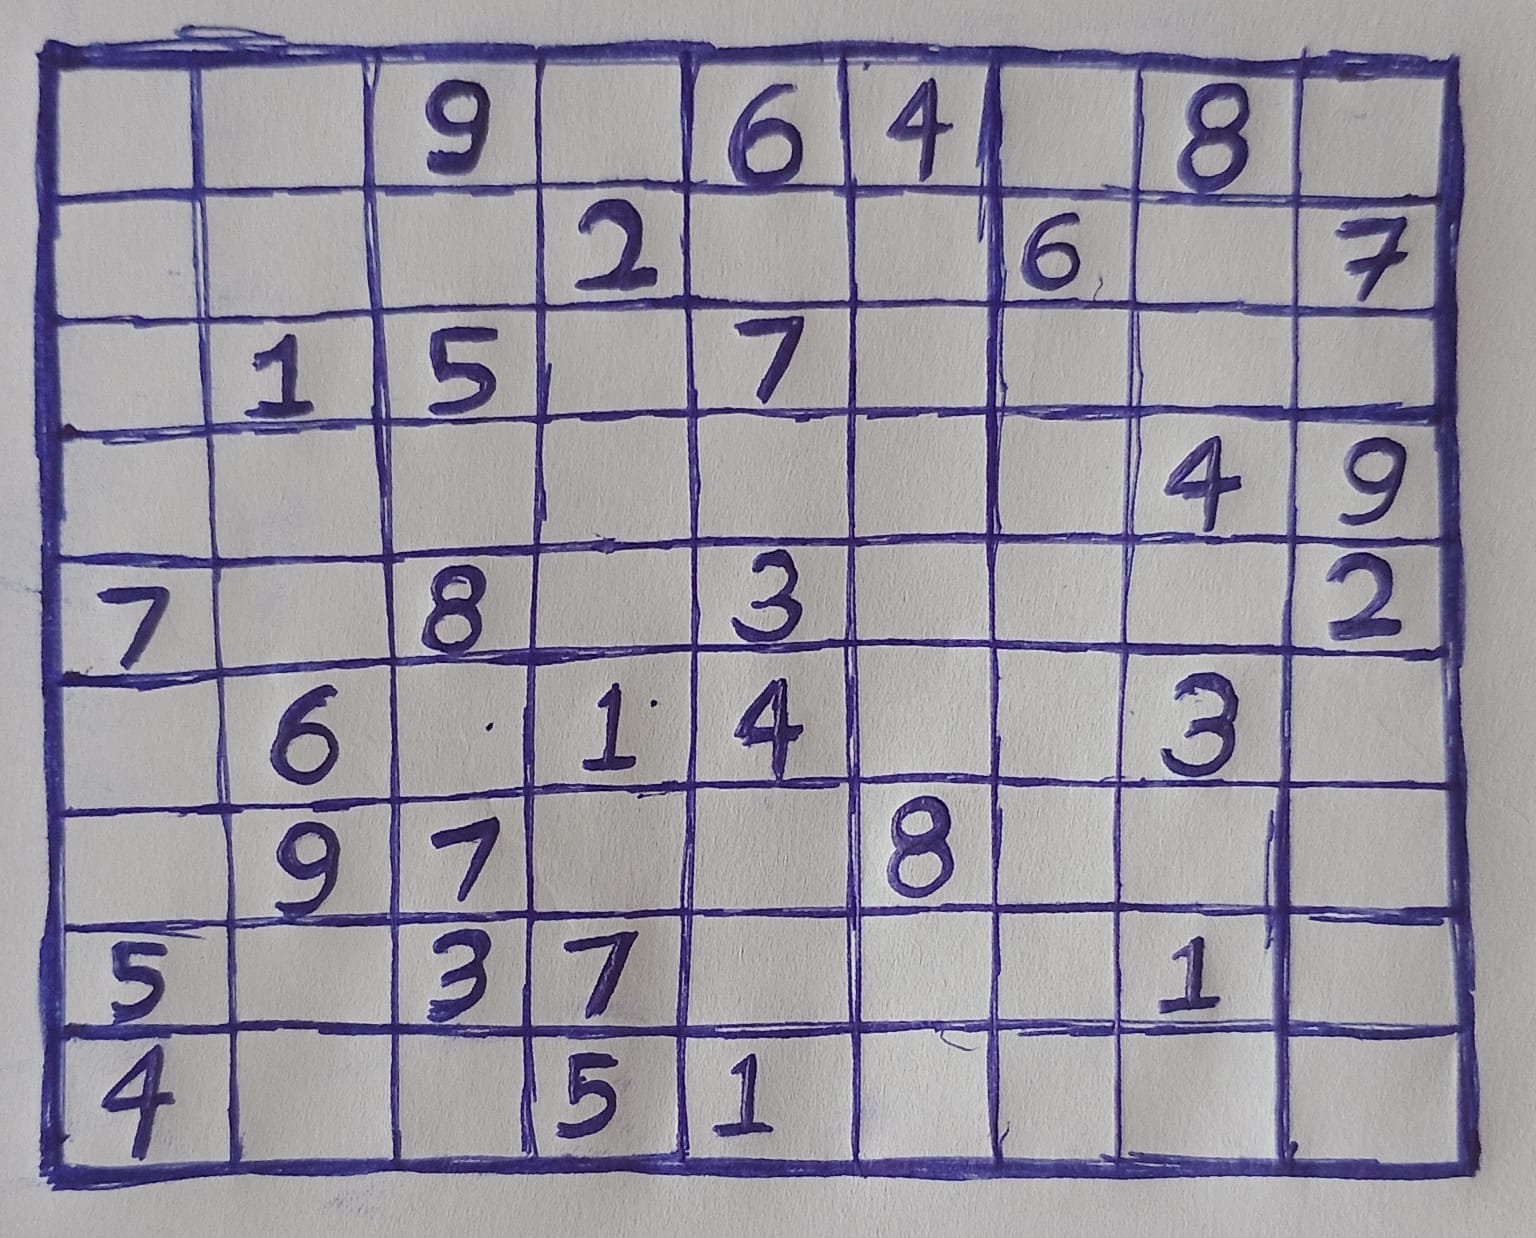 9 6 4 8
2 6 7
1 5 7
4 9
7 8 3 2
6 1 4 3
9 7 8
5 3 7 1
4 5 1